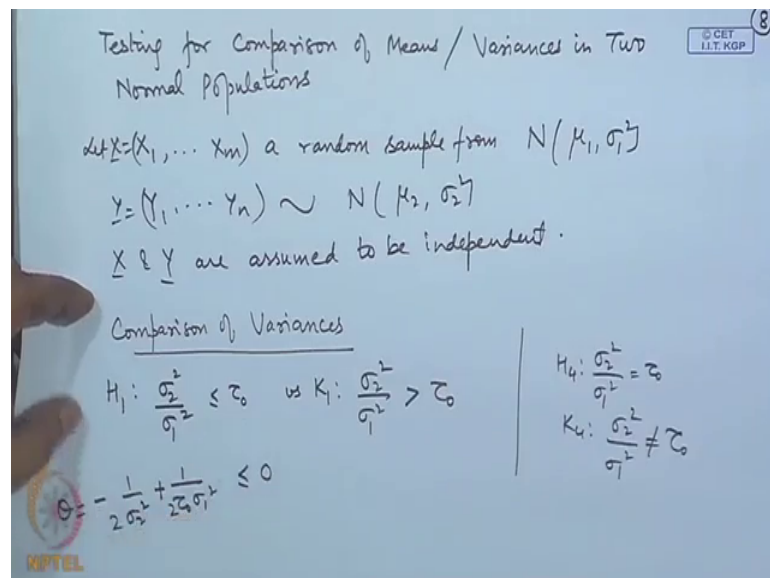 8
© CET
I.I.T. KGP
Testing for Comparison of Means / Variances in Two
Normal Populations
Let X̲=(X₁, ... Xm) a random sample from N(μ₁, σ₁²)
Y̲=(Y₁, ... Yn) ~ N(μ₂, σ₂²)
X̲ & Y̲ are assumed to be independent.
Comparison of Variances
H₁: σ₂²/σ₁² ≤ τ₀ vs K₁: σ₂²/σ₁² > τ₀
θ = - 1/2σ₂² + 1/2τ₀σ₁² ≤ 0
H₄: σ₂²/σ₁² = τ₀
K₄: σ₂²/σ₁² ≠ τ₀
NPTEL